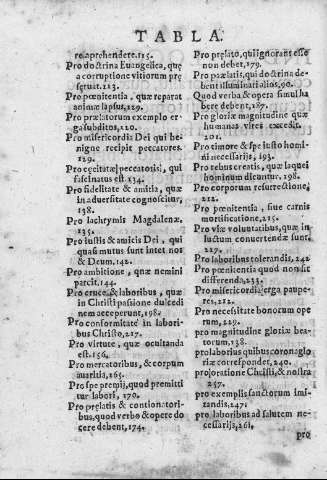 TABLA.
re, aprehendere. 115.
Pro doctrina Euangelica, quę
a corruptione vitiorum pręseruit.
113.
Pro pœnitentia, quæ reparat
animæ lapsus, 129.
Pro prælatorum exemplo erga
subditos, 120.
Pro misericordia Dei qui benigne
recipit peccatores.
129.
Pro cęcitate peccatoris, qui
fascinatus est. 134.
Pro fidelitate & amicitia, quæ
in aduersitate cognoscitur,
138.
Pro lachrymis Magdalenæ.
135.
Pro iustis & amicis Dei, qui
quasi mutus sunt inter nos
& Deum, 142.
Pro ambitione, quæ nemini
parcit. 144.
Pro cruce & laboribus, quæ
in Christi passione dulcedinem
acceperunt, 198.
Pro conformitate in laboribus
Christo, 217.
Pro virtute, quæ occultanda
est. 156.
Pro mercatoribus, & corpum
maritia, 165.
Pro spe premij, quod premittitur
labori, 170.
Pro pręlatis & contionatoribus,
quod verbo & opere docere
debent, 174.
Pro pręlato, qui ignorans esse
non debet, 179.
Pro prælatis, qui doctrina debent
illuminati alios, 90.
Quod verba & opera simul habere
debent, 187.
Pro gloriæ magnitudine quæ
humanas vires excedit.
201.
Pro timore & spe iusto homini
necessarijs, 193.
Pro rebus creatis, quæ laquei
hominum dicuntur, 198.
Pro corporum resurrectione,
212.
Pro pœnitentia, siue carnis
mortificatione, 215.
Pro vię voluntatibus, quæ in
luctum conuertendæ sunt.
227.
Pro laboribus tolerandis, 242
Pro pœnitentia quod non sit
differenda, 235.
Pro misericordia erga pauperes,
212.
Pro necessitate bonorum operum,
229.
pro magnitudine gloriæ beatorum,
138.
pro laborius quibus coronaglorię
correspondet, 240.
pro oratione Christi, & nostra
257.
pro exemplis sanctorum imitandis,
247.
pro laboribus ad salutem necessarijs,
261.
pro